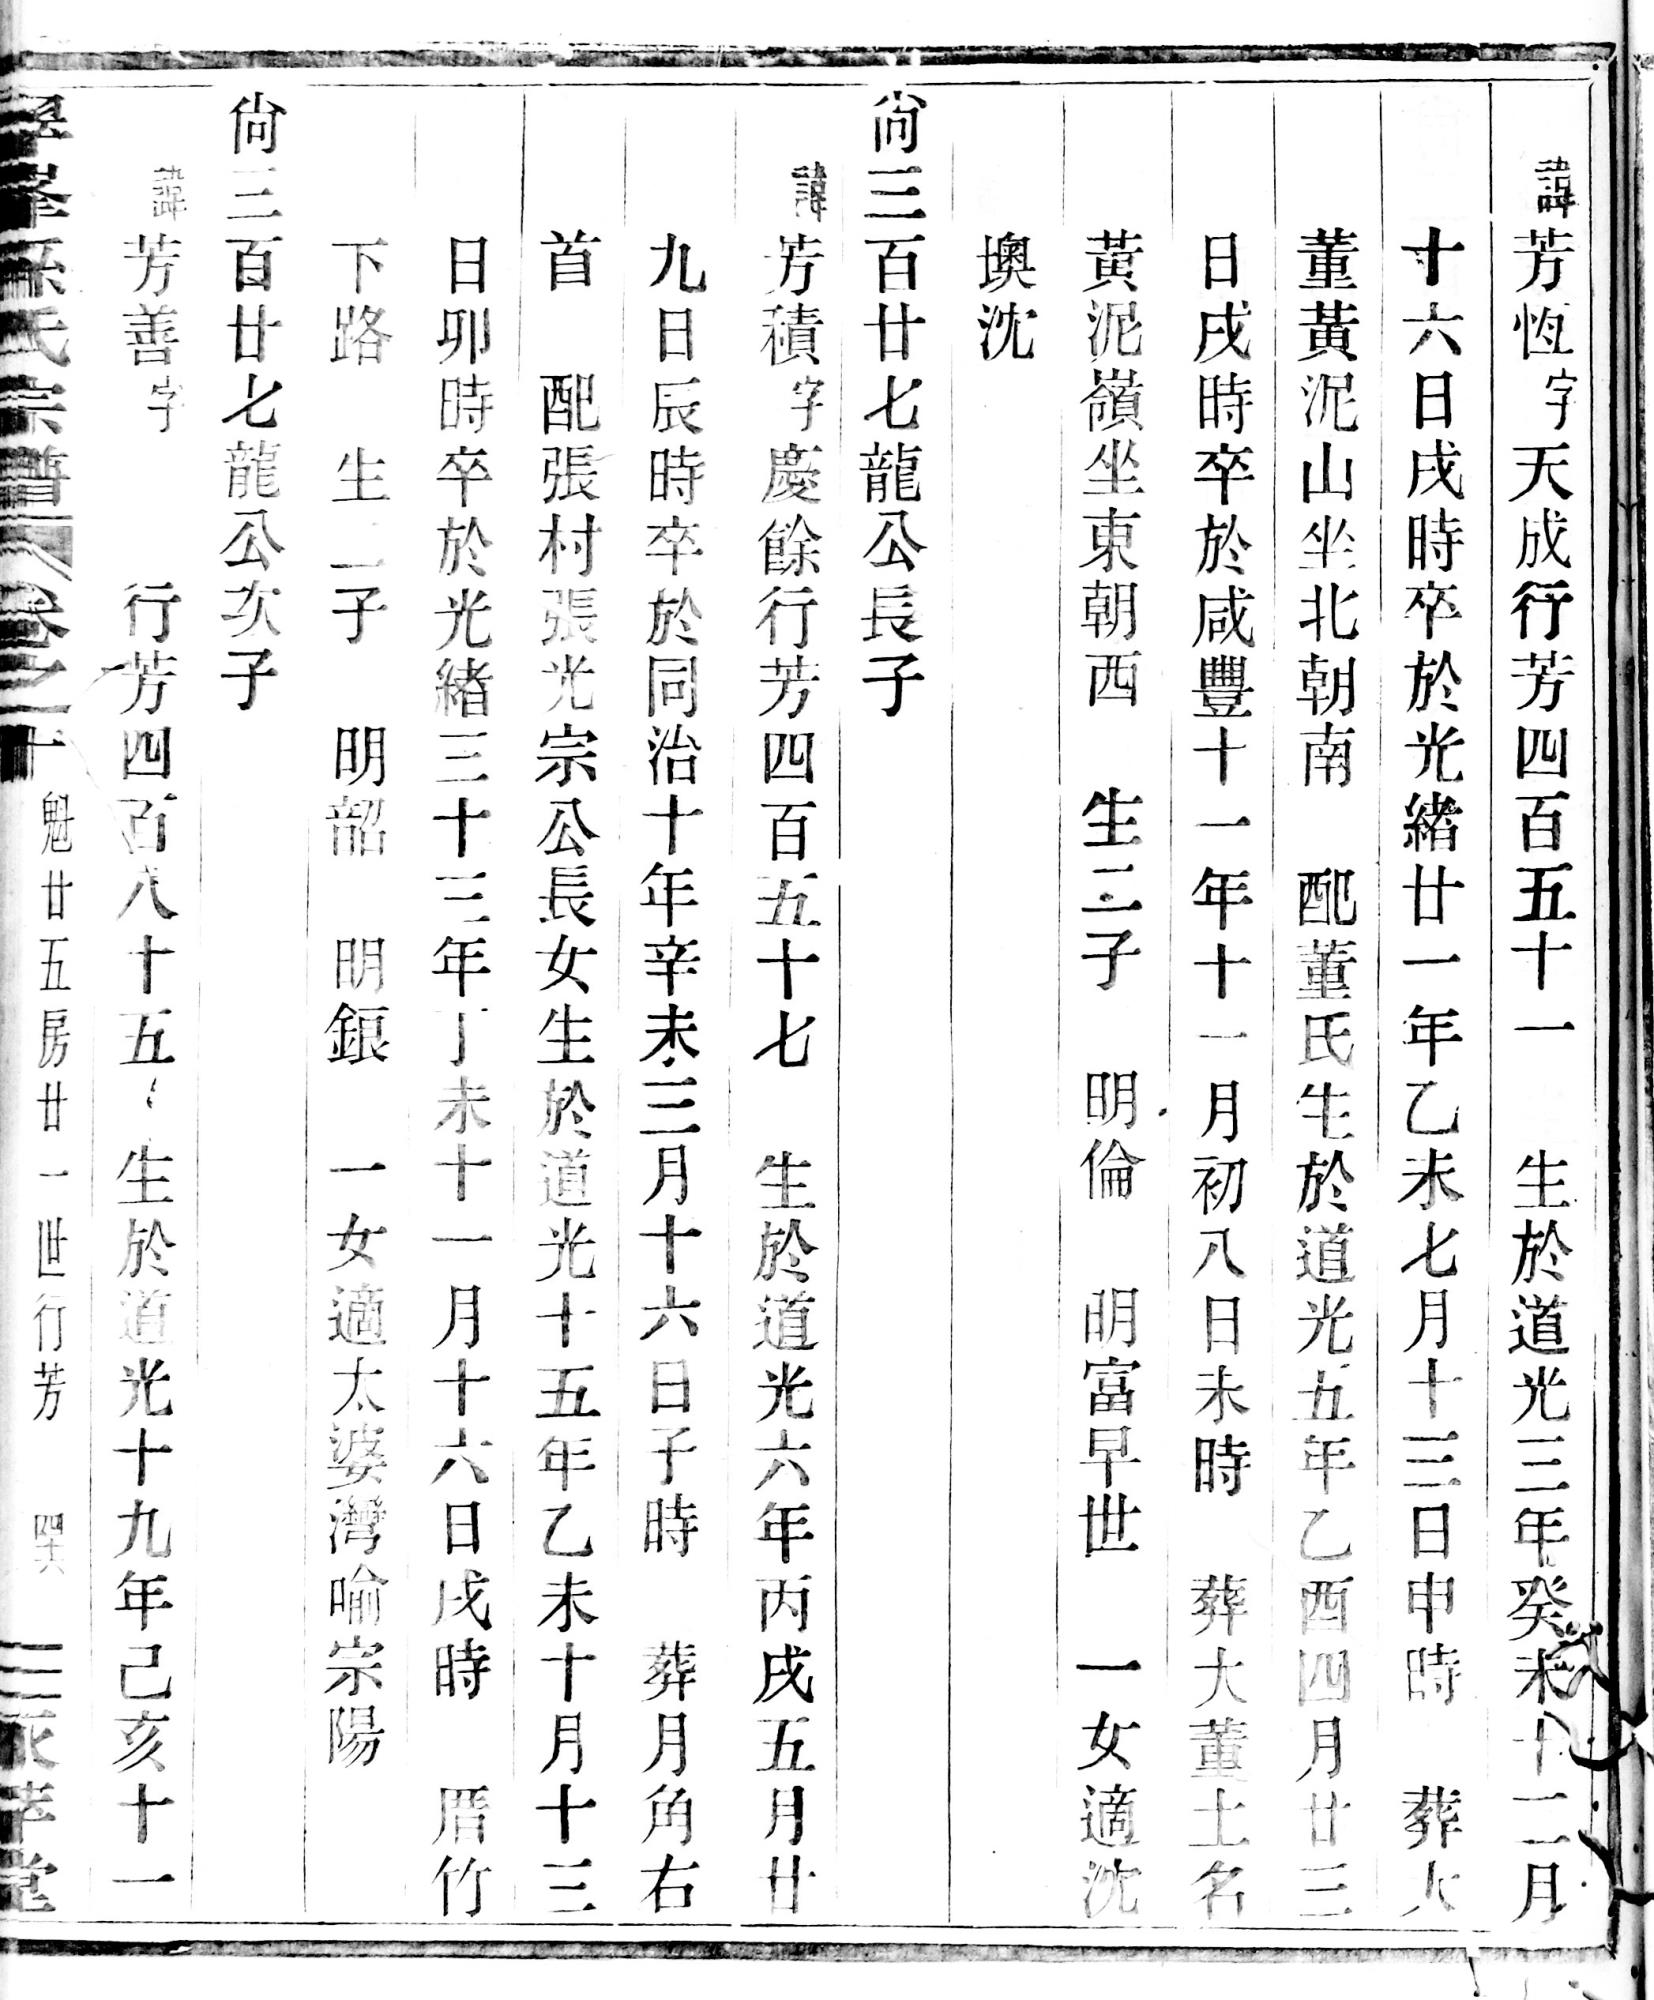 諱芳恆字天成行芳四百五十一 生於道光三年癸未十二月
十六日戌時卒於光緒廿一年乙未七月十三日申時 葬大
董黃泥山坐北朝南 配董氏生於道光五年乙酉四月廿三
日戌時卒於咸豐十一年十一月初八日未時 葬大董土名
黃泥嶺坐東朝西 生二子 明倫 明富早世 一女適沈
墺沈
尙三百廿七龍公長子
諱芳積字慶餘行芳四百五十七 生於道光六年丙戌五月廿
九日辰時卒於同治十年辛未三月十六日子時 葬月角右
首 配張村張光宗公長女生於道光十五年乙未十月十三
日卯時卒於光緒三十三年丁未十一月十六日戌時 厝竹
下路 生二子 明韶 明銀 一女適太婆灣喻宗陽
尙三百廿七龍公次子
諱芳善字 行芳四百八十五 生於道光十九年己亥十一
孫氏宗譜 卷之十 魁廿五房廿一世行芳 四六 孝堂